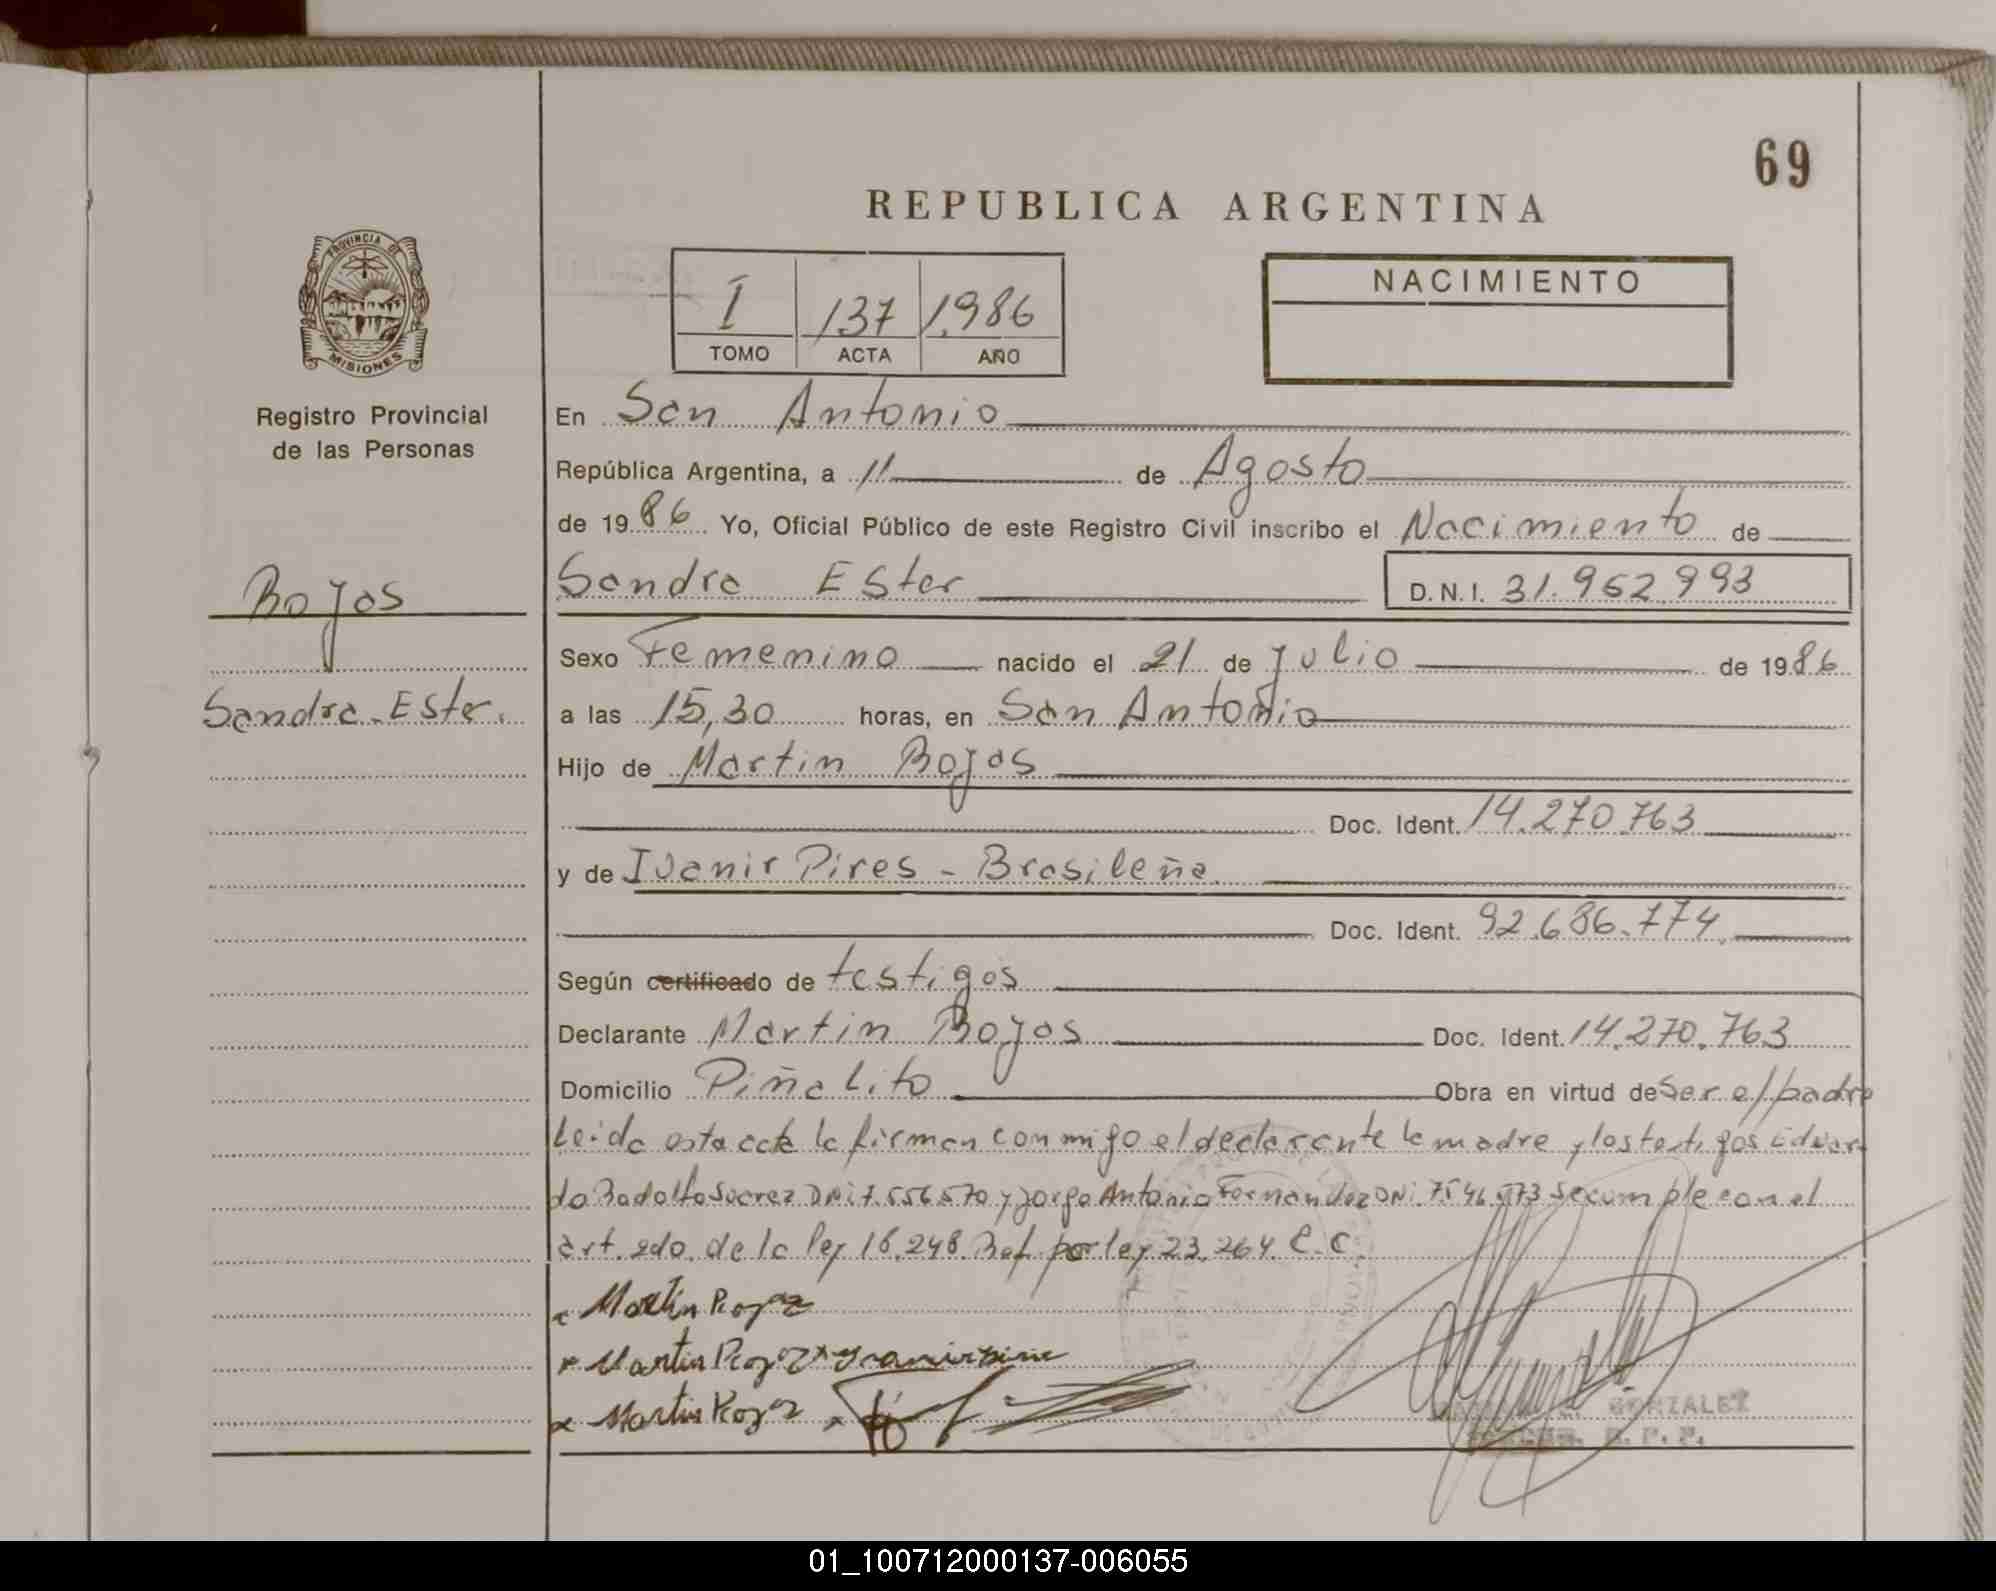 69
REPUBLICA ARGENTINA
PROVINCIA DE
MISIONES
Registro Provincial
de las Personas
I 137 1986
TOMO ACTA AÑO
NACIMIENTO
En San Antonio
República Argentina, a 11 de Agosto
de 1986 Yo, Oficial Público de este Registro Civil inscribo el Nacimiento de
Rojas
Sandra Ester D.N.I. 31.952.993
Sandra Ester.
Sexo Femenino nacido el 21 de Julio de 1986
a las 15,30 horas, en San Antonio
Hijo de Martin Rojas
Doc. Ident. 14.270.763
y de Ivanir Pires - Brasileña.
Doc. Ident. 92.686.774
Según certificado de testigos
Declarante Martin Rojas Doc. Ident. 14.270.763
Domicilio Piñalito Obra en virtud de Ser el padre
Leida esta acta la firman conmigo el declarante la madre y los testigos Eduar-
do Rodolfo Suarez DNi 7.556.570 y Jorge Antonio Fernandez DNi. 7546.573 Se cumple con el
art. 2do. de la ley 18.248. Ref por ley 23.264. C.C.
x Martin Rojas
x Martin Rojas x
x Martin Rojas x
GONZALEZ
01_100712000137-006055